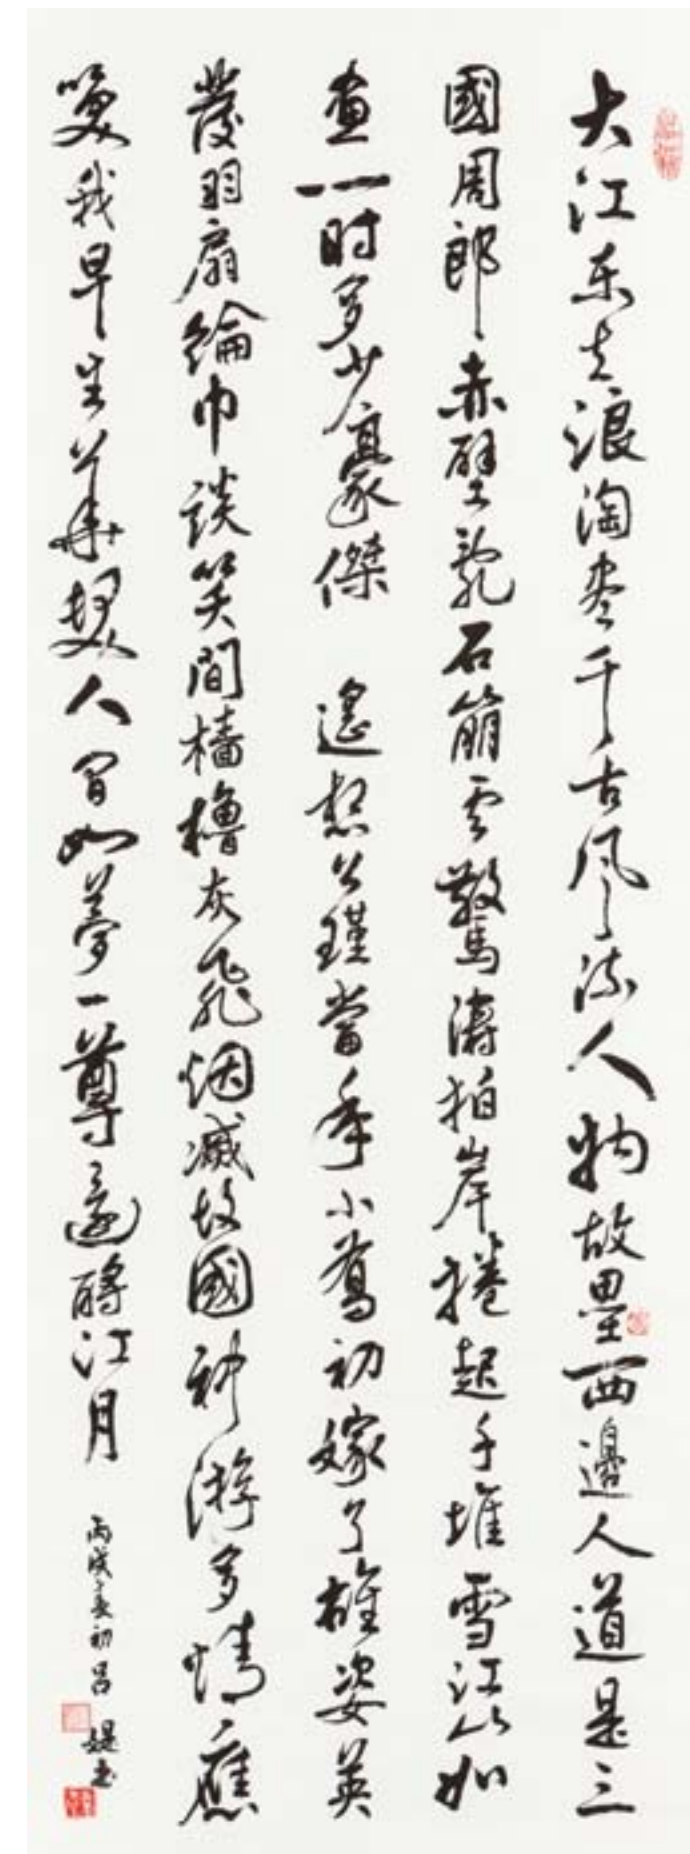 大江东去浪淘尽千古风流人物故垒西邊人道是三
國周郎赤壁乱石崩云驚濤拍岸捲起千堆雪江山如
画一时多少豪傑 遥想公瑾當年小喬初嫁了雄姿英
發羽扇綸巾談笑間檣櫓灰飛烟滅故國神游多情應
笑我早生华髮人间如夢一尊還酹江月
丙戌夏初吕媞书